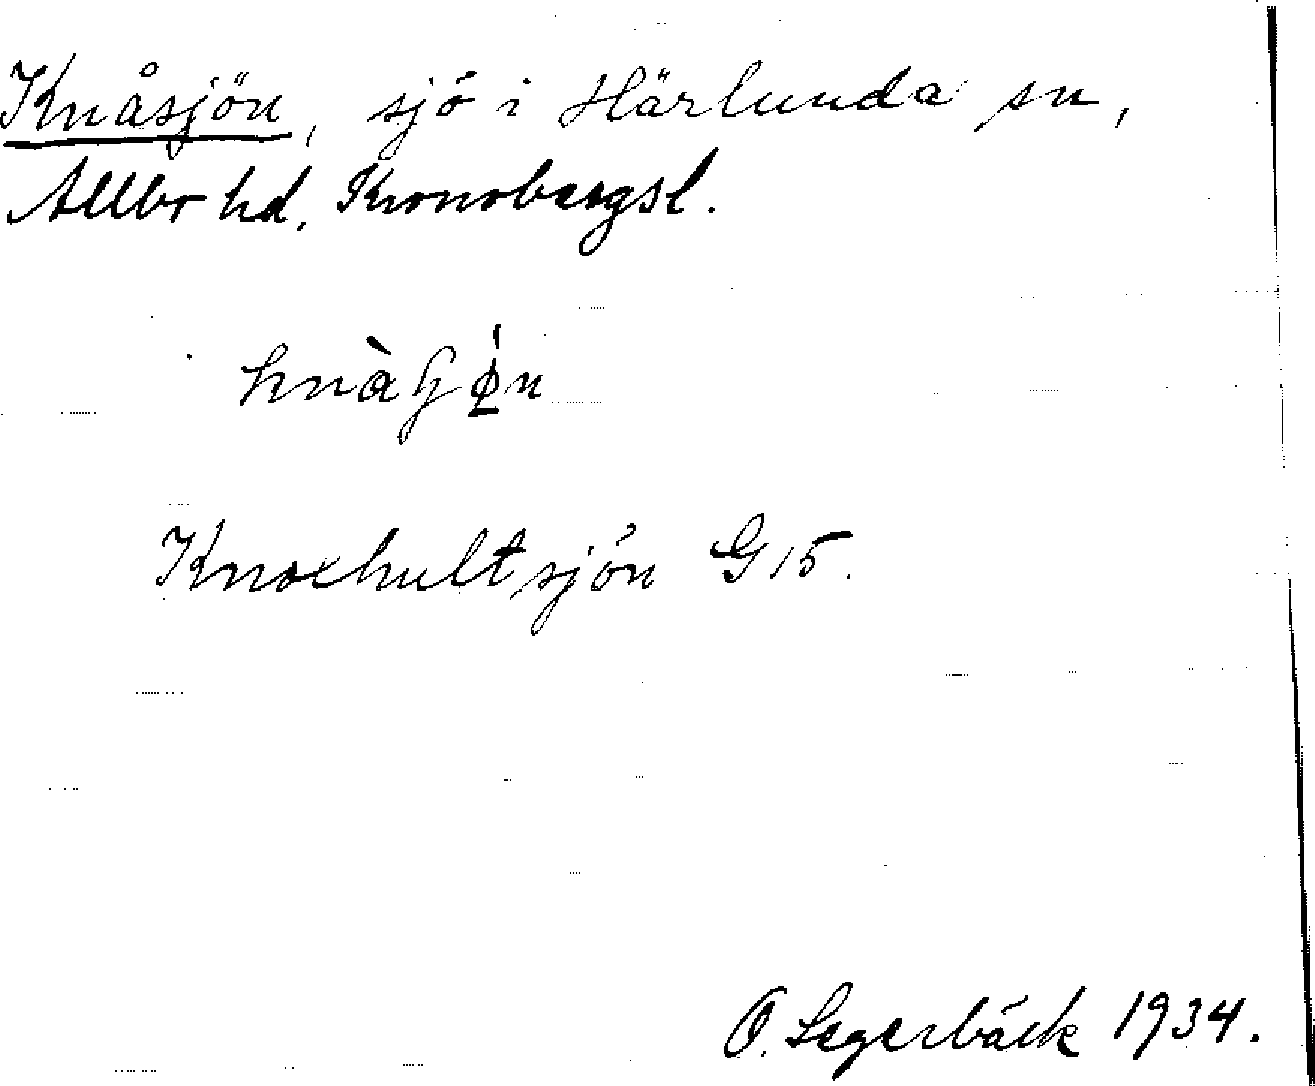 Knåsjön, sjö i Härlunda sn,
Allbo hd, Kronobergsl.
Knoxhultsjön G15.
O. Segerbäck 1934.